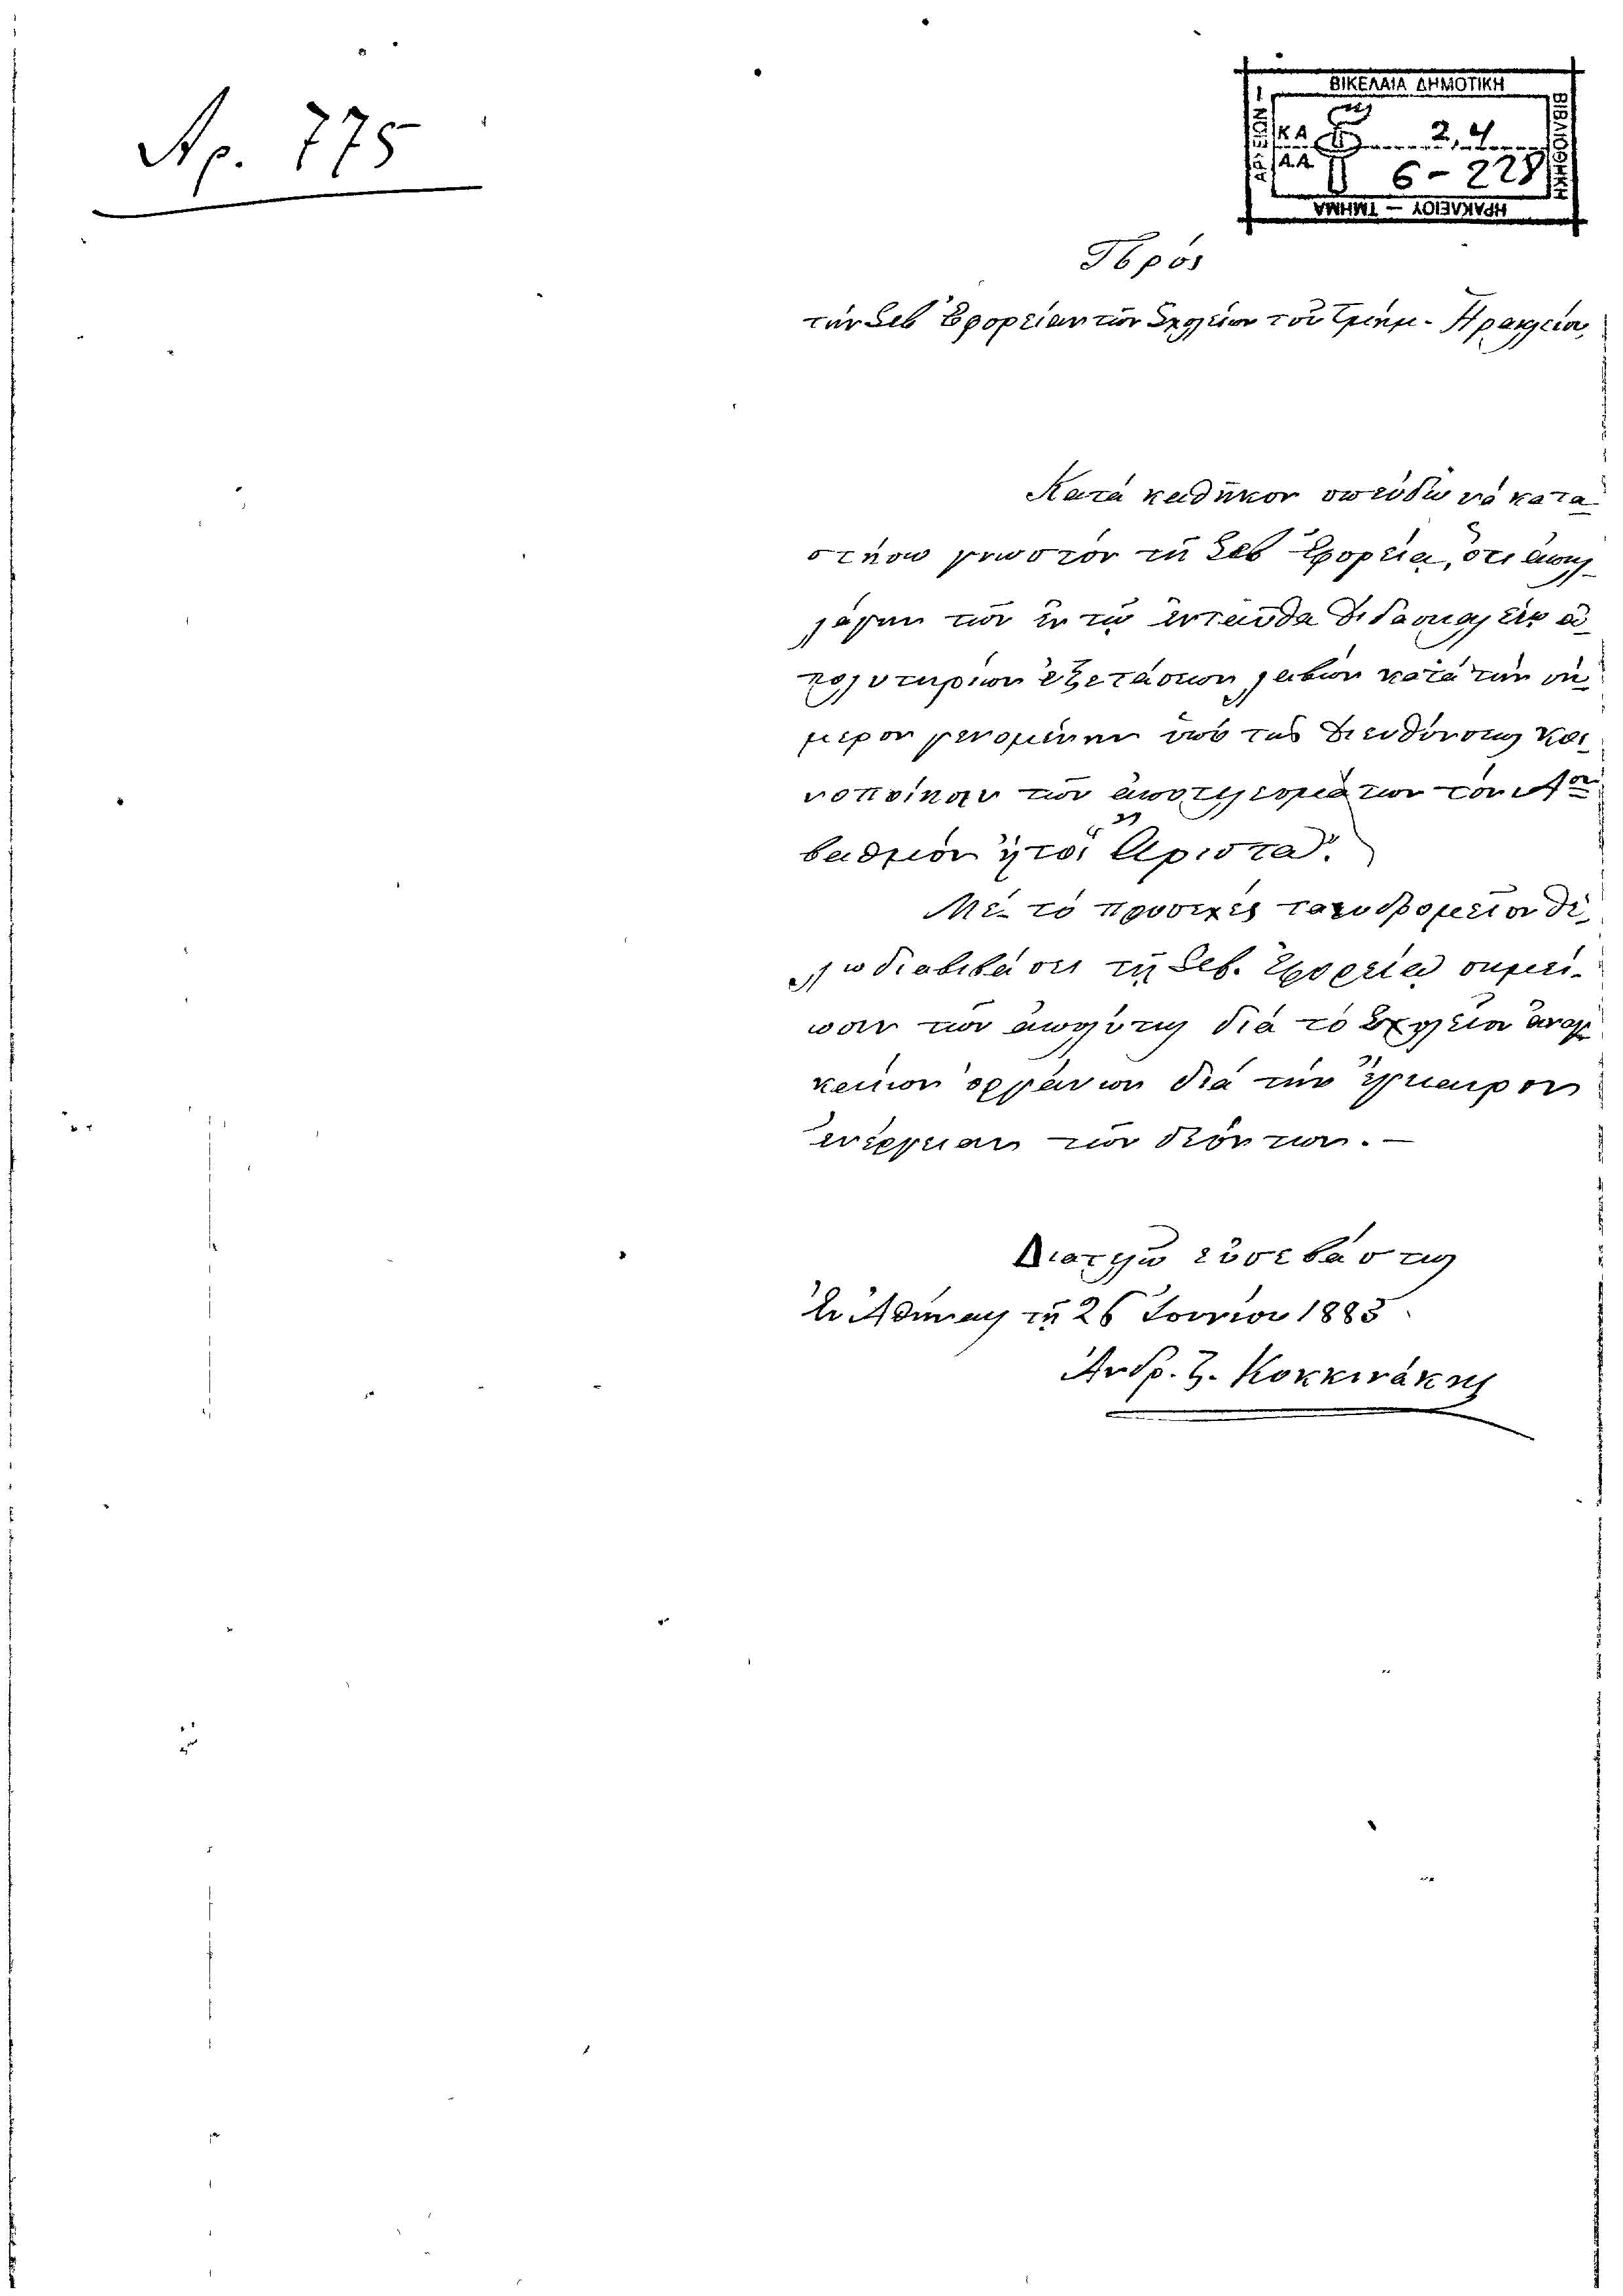 Αρ. 775
ΒΙΚΕΛΑΙΑ ΔΗΜΟΤΙΚΗ
2,4
6-228
ΗΡΑΚΛΕΙΟΥ — ΤΜΗΜΑ
Πρός
τὴν Σεβ Ἐφορείαν τῶν Σχολείων τοῦ Ἡρακλείου,
Κατὰ καθῆκον σπεύδω νὰ κατα
στήσω γνωστὸν τῇ Σεβ Ἐφορείᾳ, ὅτι ἀπηλ-
λάγην τῶν ἐν τῷ ἐνταῦθα Διδασκαλείῳ ἀ
πολυτηρίων ἐξετάσεων, λαβὼν κατὰ τὴν σή
μερον γενομένην ὑπὸ τῆς Διευθύνσεως κοι
νοποίησιν τῶν ἀποτελεσμάτων τὸν Αον
βαθμὸν ἤτοι Ἄριστα.
Μὲ τὸ προσεχὲς ταχυδρομεῖον θέ
λω διαβιβάσει τῇ Σεβ. Ἐφορείᾳ σημεί-
ωσιν τῶν ἀπολύτως διὰ τὸ Σχολεῖον ἀναγ
καίων ὀργάνων διὰ τὴν ἔγκαιρον
ἐνέργειαν τῶν δεόντων. —
Διατελῶ εὐσεβάστως
Ἐν Ἀθήναις τῇ 26 Ἰουνίου 1883
Ἀνδρ. Ζ. Κοκκινάκης